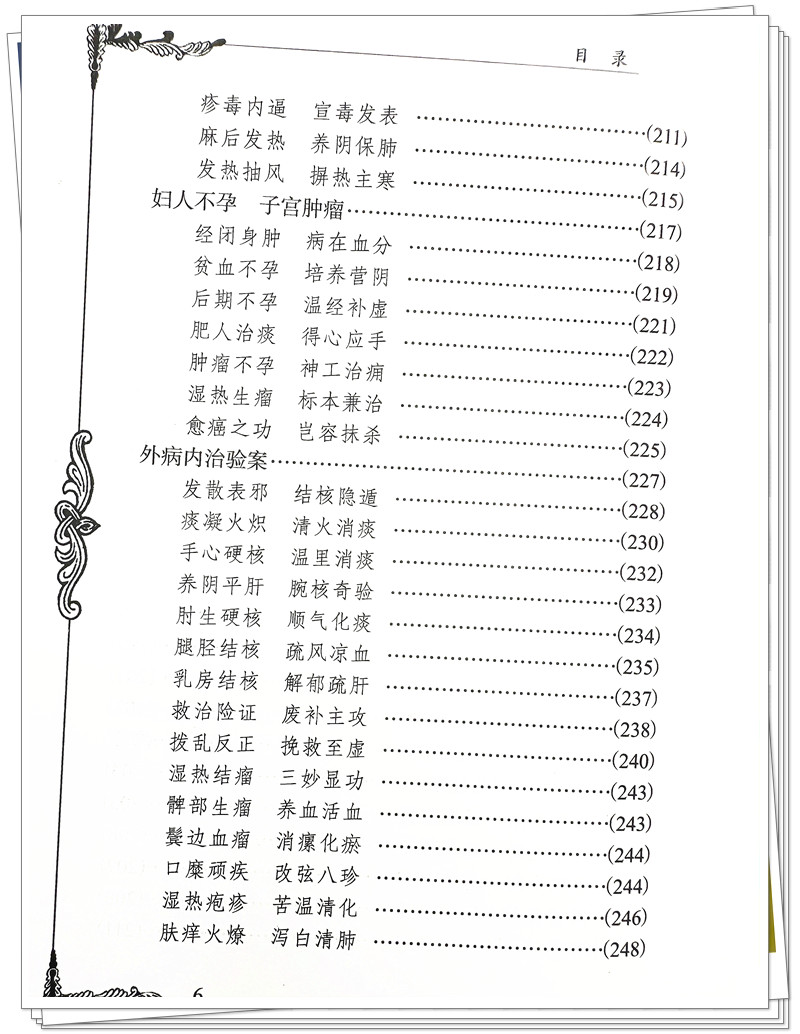 目 录
疹毒内逼 宣毒发表 (211)
麻后发热 养阴保肺 (214)
发热抽风 摒热主寒 (215)
妇人不孕 子宫肿瘤 (217)
经闭身肿 病在血分 (218)
贫血不孕 培养营阴 (219)
后期不孕 温经补虚 (221)
肥人治痰 得心应手 (222)
肿瘤不孕 神工治痈 (223)
湿热生瘤 标本兼治 (224)
愈癌之功 岂容抹杀 (225)
外病内治验案 (227)
发散表邪 结核隐遁 (228)
痰凝火炽 清火消痰 (230)
手心硬核 温里消痰 (232)
养阴平肝 腕核奇验 (233)
肘生硬核 顺气化痰 (234)
腿胫结核 疏风凉血 (235)
乳房结核 解郁疏肝 (237)
救治险证 废补主攻 (238)
拨乱反正 挽救至虚 (240)
湿热结瘤 三妙显功 (243)
髀部生瘤 养血活血 (243)
鬓边血瘤 消瘰化瘀 (244)
口糜顽疾 改弦八珍 (244)
湿热疱疹 苦温清化 (246)
肤痒火燎 泻白清肺 (248)
6